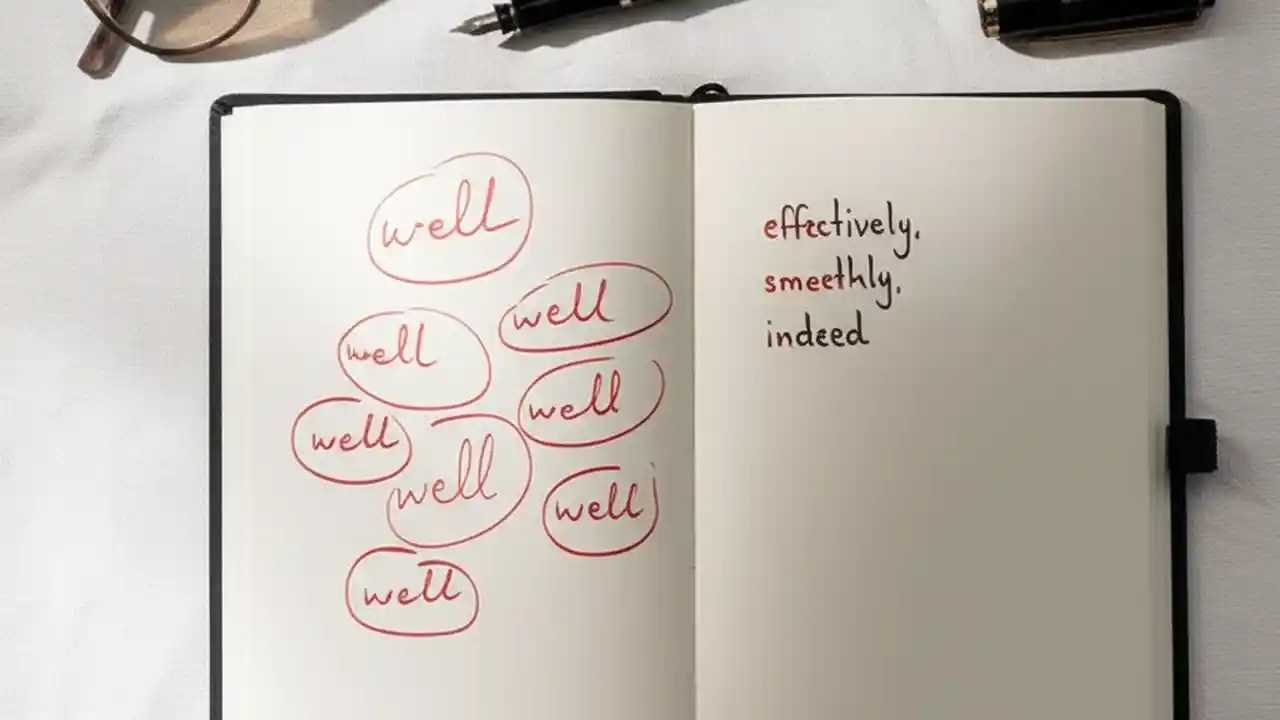 well
well
well
well
well
well
well
well
effectively,
smoothly,
indeed